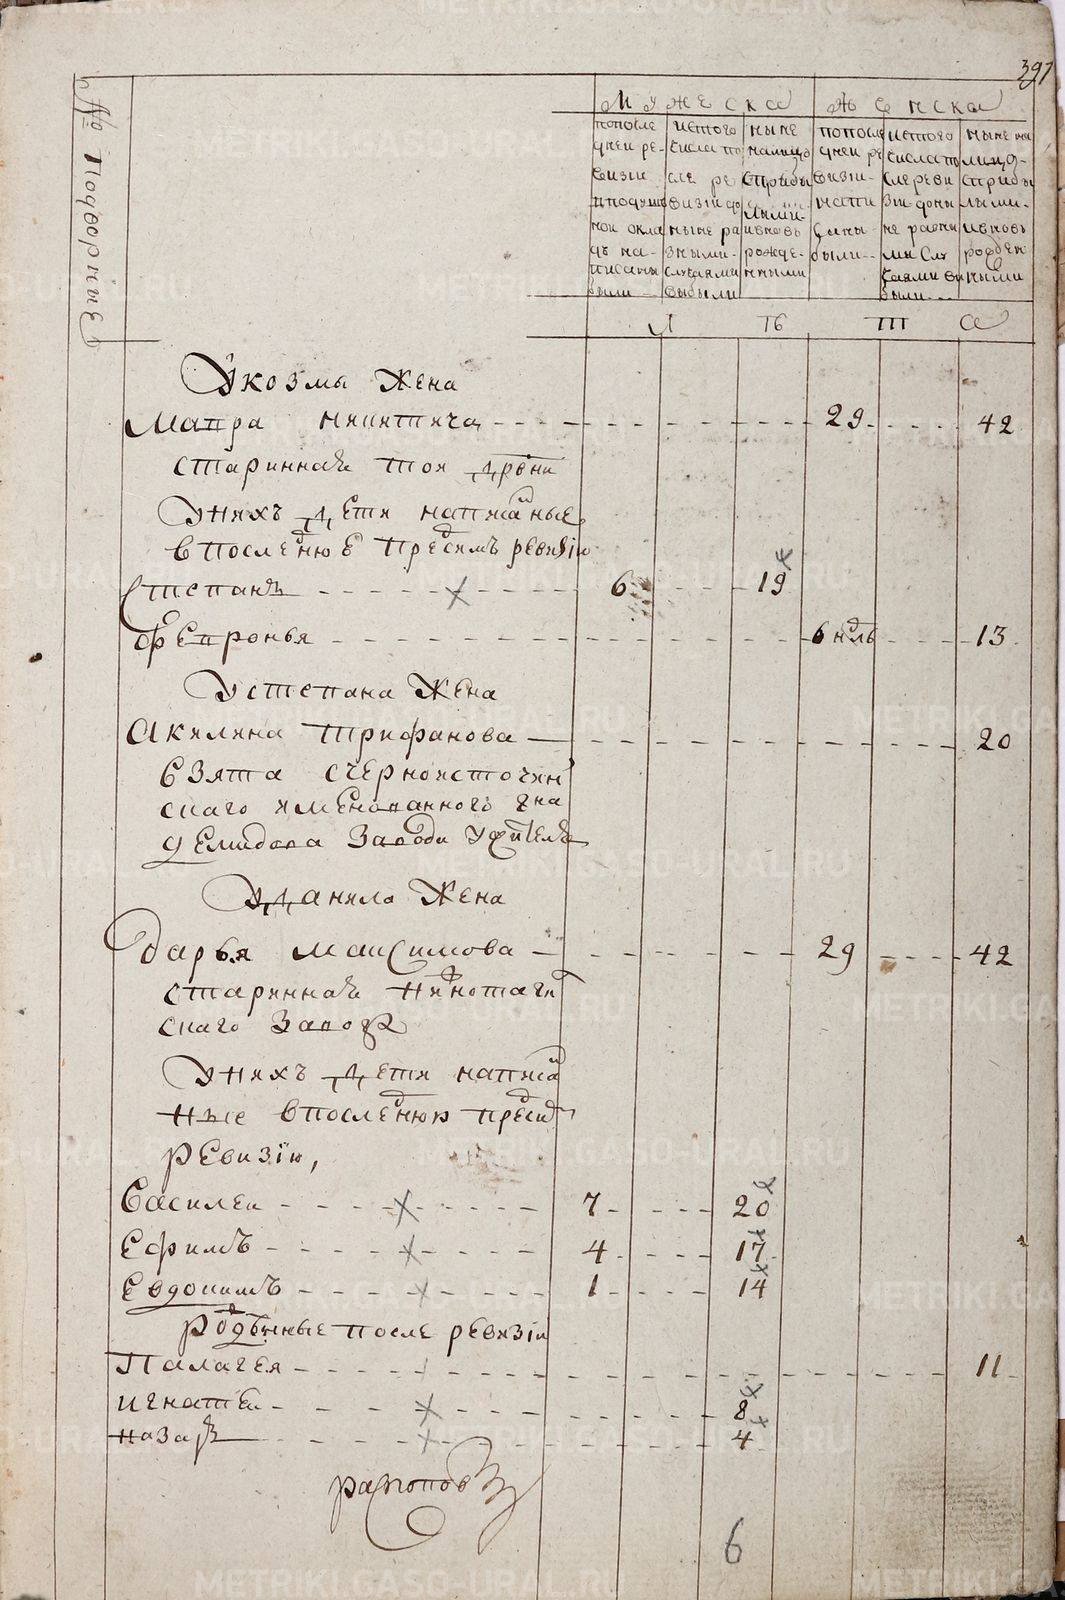 397
№ Подворные
Мужеска
Женска
По последней ревизии в подушной оклад написаны были
Из того числа по сле ревизии до ныне разными случаями выбыли
Ныне на лицо с прибылыми и вновь рожденными
По последней ревизии написаны были
Из того числа после ревизии до ныне разными случаями выбыли
Ныне на лицо с прибылыми и вновь рожденными
лета
У козмы жена
Мавра никитина 29 42
стариннаѧ тоя древни
У нихъ дети написаные
в последнюю пред симъ ревизiю
Степанъ 6 19
Феѵронья 6 недль 13
У степана жена
Акилина трифанова 20
взята с черноисточин
скаго имеиованного гна
демидова завода жителѧ
У данила жена
Дарья максимова 29 42
стариннаѧ нижнотаги
скаго завода
У нихъ дети написа
ные в последнюю пред сим
ревизiю,
Василеи 7 20
Ефимъ 4 17
Евдокимъ 1 14
рожденные после ревизiи
Палагея 11
игнатеи 8
назаръ 4
6